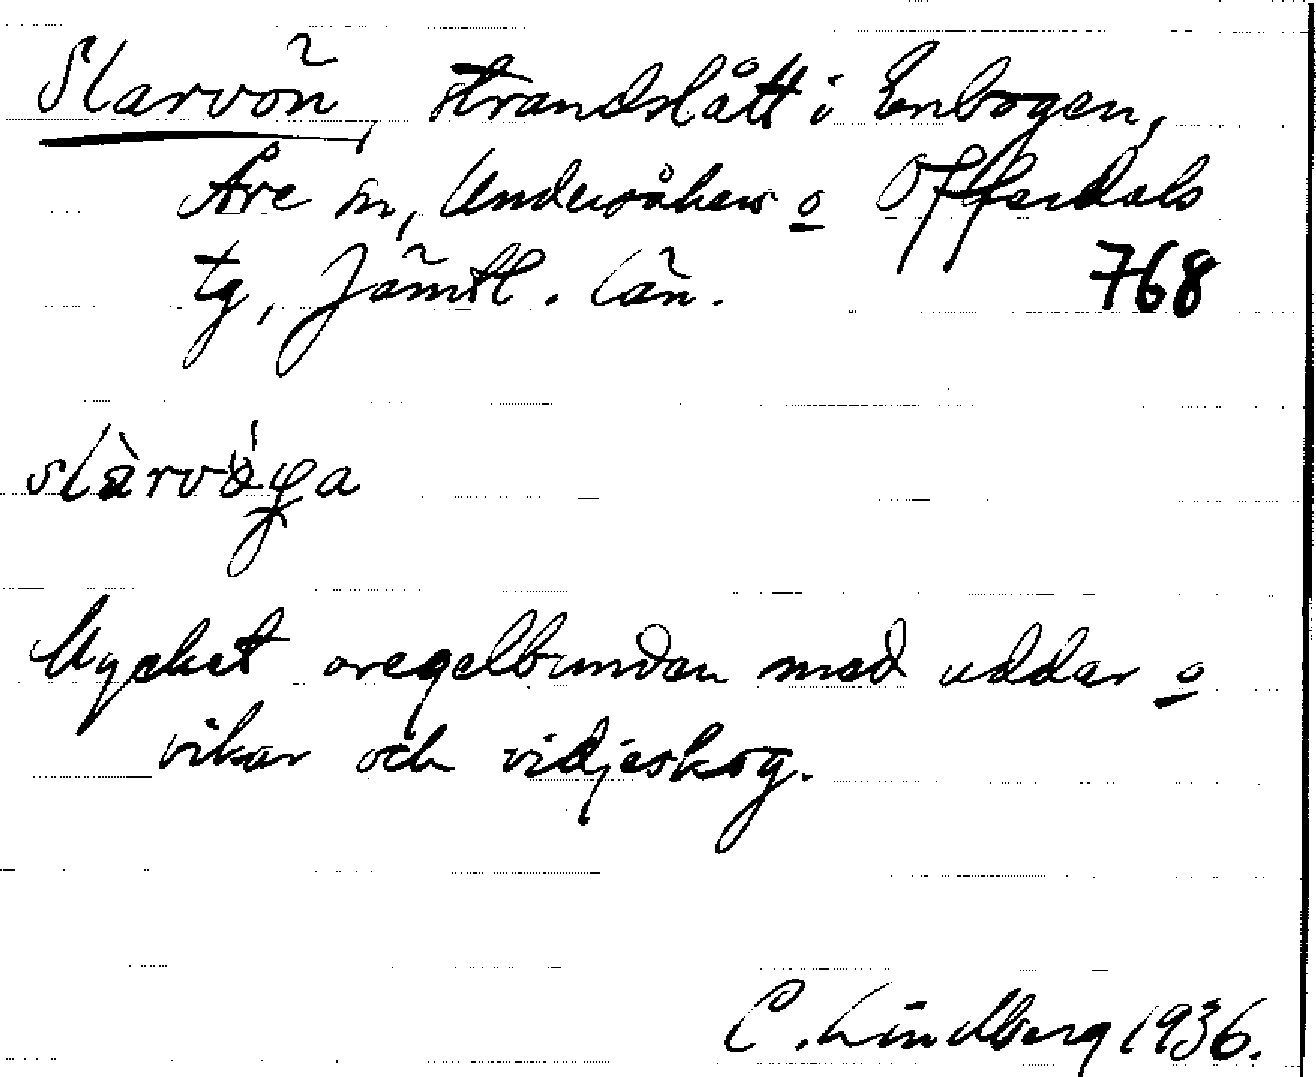 Slarvön, strandslått i Enbogen,
Åre sn, Undersåkers o Offerdals
tg, Jämtl. län. 768
Mycket oregelbunden med uddar o
vikar och vidjeskog.
C. Lindberg 1936.